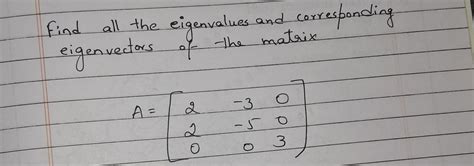 Find all the eigenvalues and corresponding
eigenvectors of the matrix
A = [ 2 -3 0
2 -5 0
0 0 3 ]